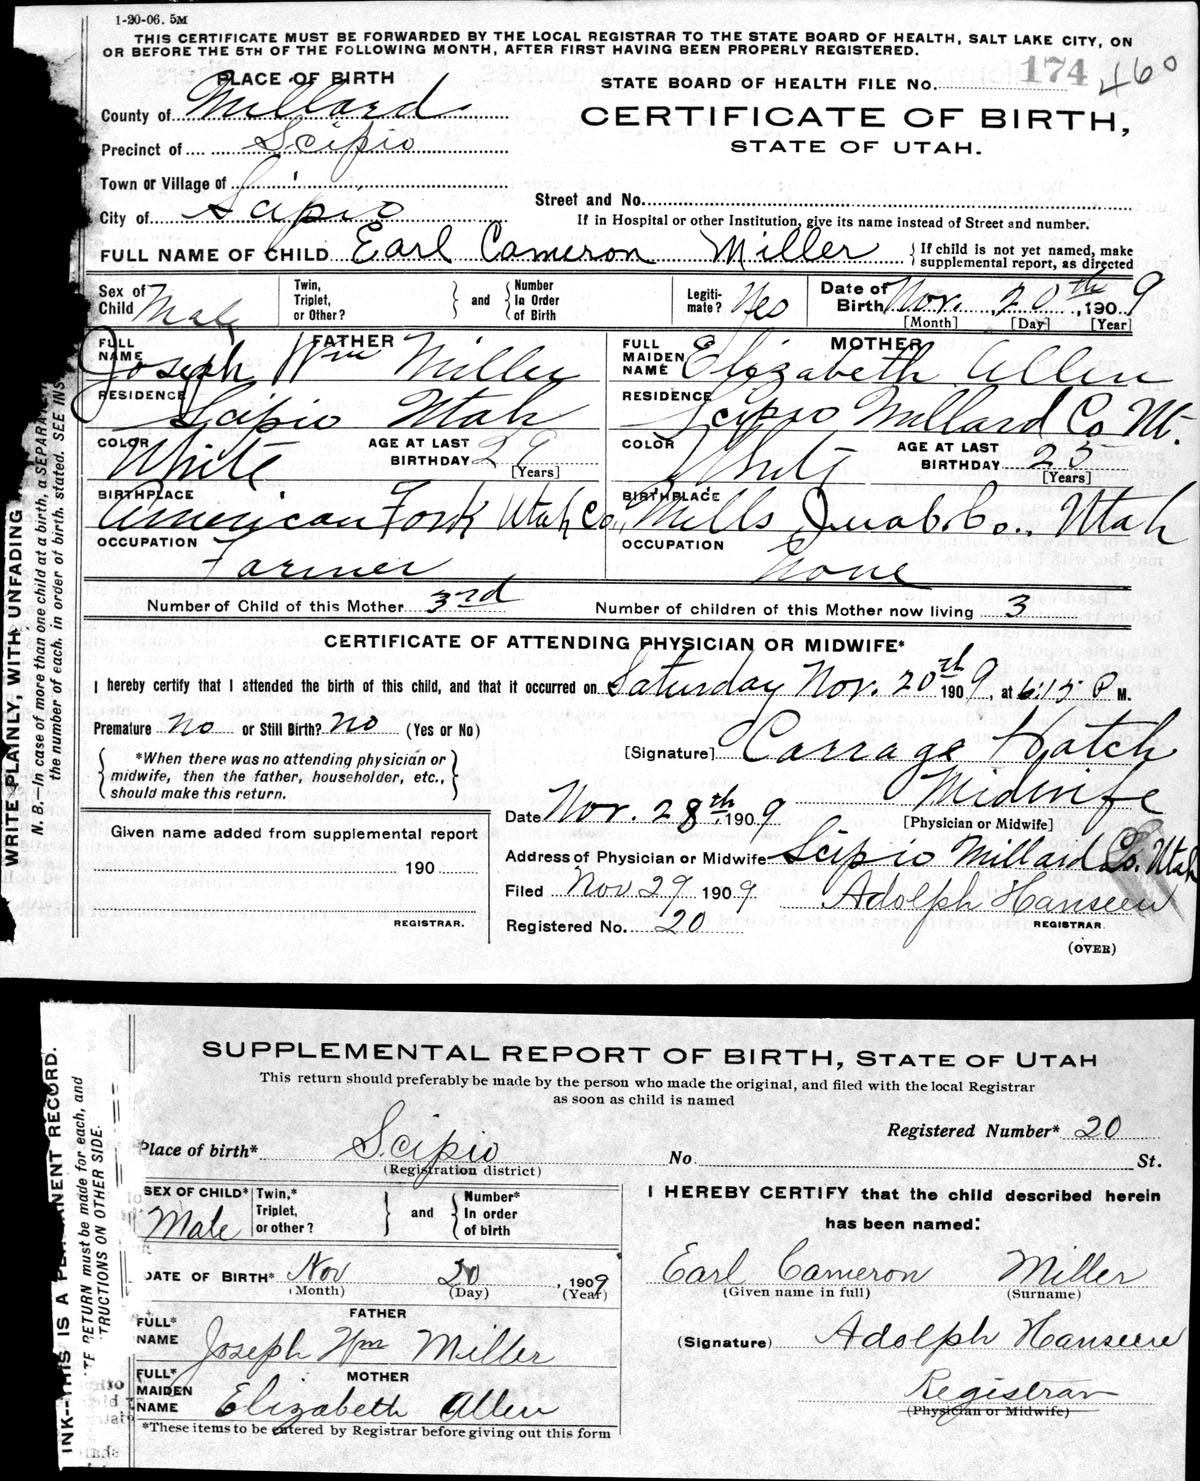 1-20-06. 5M
THIS CERTIFICATE MUST BE FORWARDED BY THE LOCAL REGISTRAR TO THE STATE BOARD OF HEALTH, SALT LAKE CITY, ON
OR BEFORE THE 5TH OF THE FOLLOWING MONTH, AFTER FIRST HAVING BEEN PROPERLY REGISTERED.
PLACE OF BIRTH
STATE BOARD OF HEALTH FILE NO. 174 460
County of Millard
CERTIFICATE OF BIRTH,
STATE OF UTAH.
Precinct of Scipio
Town or Village of
Street and No.
City of Scipio
If in Hospital or other Institution, give its name instead of Street and number.
FULL NAME OF CHILD Earl Cameron Miller
If child is not yet named, make
supplemental report, as directed
Sex of Child Male
Twin, Triplet, or Other?
and
Number In Order of Birth
Legitimate? Yes
Date of Birth Nov. 20th, 1909
[Month] [Day] [Year]
FATHER
FULL NAME Joseph Wm Miller
MOTHER
FULL MAIDEN NAME Elizabeth Allen
RESIDENCE Scipio Utah
RESIDENCE Scipio Millard Co Ut.
COLOR White AGE AT LAST BIRTHDAY 29 [Years]
COLOR White AGE AT LAST BIRTHDAY 25 [Years]
BIRTHPLACE American Fork Utah Co.,
BIRTHPLACE Mills Juab Co., Utah
OCCUPATION Farmer
OCCUPATION None
Number of Child of this Mother 3rd Number of children of this Mother now living 3
CERTIFICATE OF ATTENDING PHYSICIAN OR MIDWIFE*
I hereby certify that I attended the birth of this child, and that it occurred on Saturday Nov. 20th 1909, at 6:15 P M.
Premature no or Still Birth? no (Yes or No)
*When there was no attending physician or
midwife, then the father, householder, etc.,
should make this return.
[Signature] Carrage Hatch
Midwife
[Physician or Midwife]
Date Nov. 28th, 1909
Address of Physician or Midwife Scipio Millard Co. Utah
Filed Nov 29 1909 Adolph Hanseen
REGISTRAR.
Registered No. 20
(OVER)
Given name added from supplemental report
190
REGISTRAR.
WRITE PLAINLY, WITH UNFADING
N. B.—In case of more than one child at a birth, a SEPARA
the number of each, in order of birth, stated. SEE INS
SUPPLEMENTAL REPORT OF BIRTH, STATE OF UTAH
This return should preferably be made by the person who made the original, and filed with the local Registrar
as soon as child is named
Registered Number* 20
Place of birth* Scipio
(Registration district)
No. St.
SEX OF CHILD* Male
Twin,* Triplet, or other?
and
Number* In order of birth
I HEREBY CERTIFY that the child described herein
has been named:
DATE OF BIRTH* Nov 20, 1909
(Month) (Day) (Year)
Earl Cameron Miller
(Given name in full) (Surname)
FATHER
FULL* NAME Joseph Wm Miller
(Signature) Adolph Hanseen
Registrar
(Physician or Midwife)
MOTHER
FULL* MAIDEN NAME Elizabeth Allen
*These items to be entered by Registrar before giving out this form
INK--THIS IS A PERMANENT RECORD.
RETURN must be made for each, and
TRUCTIONS ON OTHER SIDE.